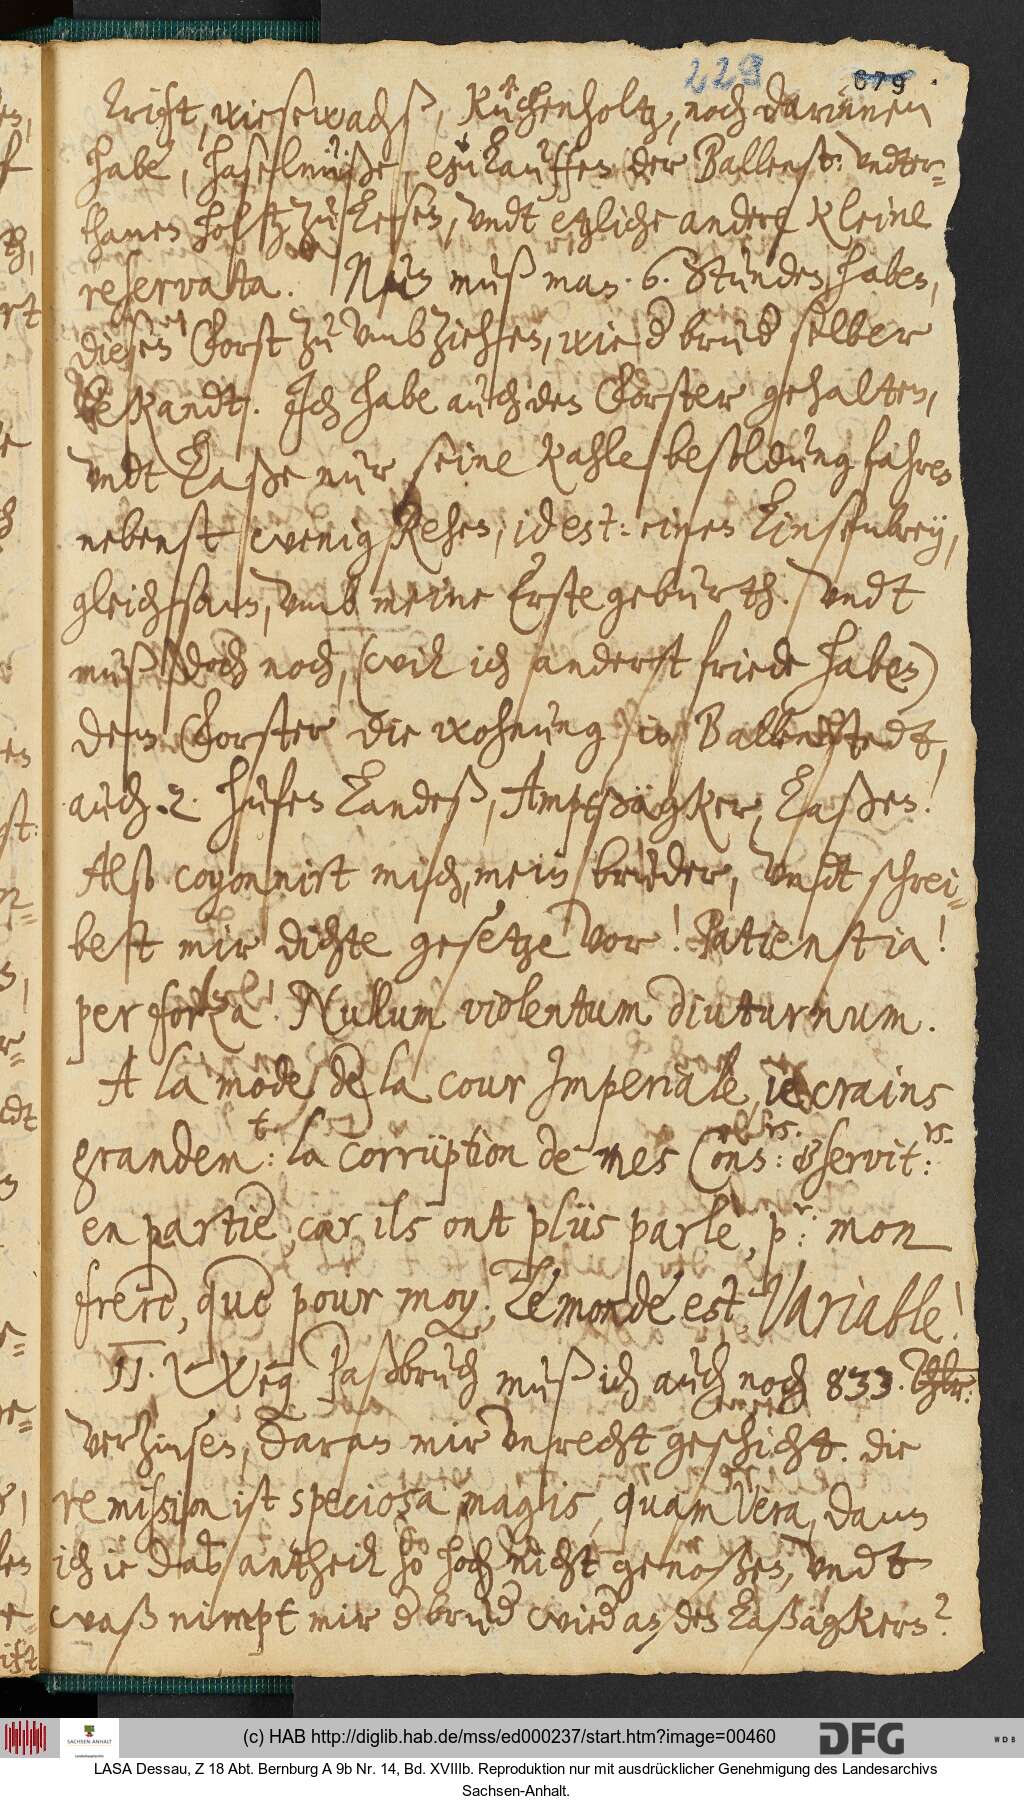 229 679
trift, wiesewachß, Kuchenholtz, noch darinnen
habe, haselnüße, erkauffen der Ballenst: vndter-
thanen holtz zu lesen, vndt etzliche andere kleine
reservata. Nun muß man .6. Stunden haben,
diesen Forst zu vmbziehen, wie d brud selber
bekandt. Ich habe auch den Förster gehalten,
vndt laße nur seine kahle besoldung fahren
nebenst wenig Rehen, id est: einen Linsenbrey,
gleichsam, vmb meine Erstegeburth. Vndt
muß doch noch, (will ich anderst friede haben)
dem Förster die wohnung in Ballenstedt,
auch .2. hufen Landeß, Amptsägker, Laßen!
Also coyonnirt mich, mein bruder, Vndt schrei-
best mir dichte gesetze vor! Patientia!
per forza! Nullum violentum diuturnum.
A la mode de la cour Imperiale, ie crains
grandem:t la corruption de mes Cons: & servit:rs.
en partie, car ils ont plus parlè, p:r mon
frere, que pour moy. Le monde est Variable!
II. Weg Paßbruch muß ich auch noch 833. Thlr:
verzinsen, daran mir vnrecht geschicht. die
remission ist speciosa magis, quam Vera, dann
ich ie das antheil so hoch nicht genoßen, vndt
waß nimpt mir d brud wied an den Laßägkern?
(c) HAB http://diglib.hab.de/mss/ed000237/start.htm?image=00460
SACHSEN-ANHALT
DFG
WDB
LASA Dessau, Z 18 Abt. Bernburg A 9b Nr. 14, Bd. XVIIIb. Reproduktion nur mit ausdrücklicher Genehmigung des Landesarchivs
Sachsen-Anhalt.